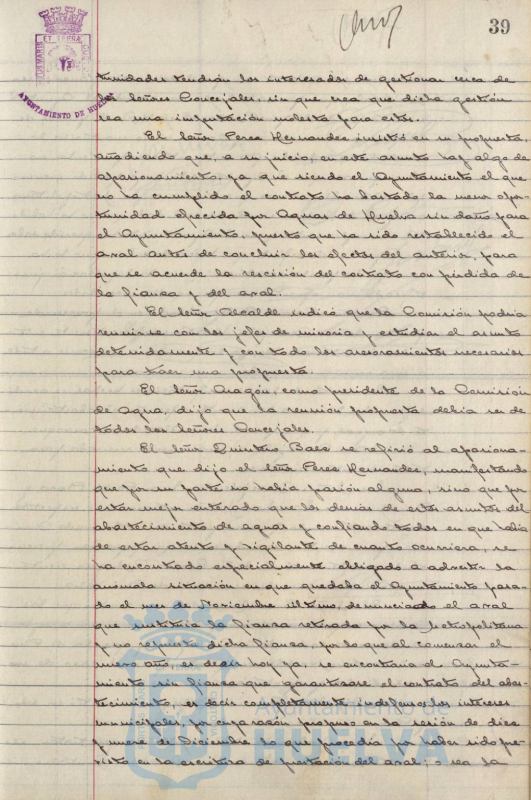 39
AYUNTAMIENTO DE HUELVA
tunidades tendrán los interesados de gestionar cerca de
los Señores Concejales, sin que crea que dicha gestión
sea una imputación molesta para estos.
El Señor Perea Hernandez insistió en su propuesta,
añadiendo que, a su juicio, en este asunto hay algo de
apasionamiento, ya que siendo el Ayuntamiento el que
no ha cumplido el contrato ha bastado la menor opor-
tunidad ofrecida por Aguas de Huelva sin daño para
el Ayuntamiento, puesto que ha sido restablecido el
aval antes de concluir los efectos del anterior, para
que se acuerde la rescisión del contrato con pérdida de
la fianza y del aval.
El Señor Alcalde indicó que la Comisión podría
reunirse con los jefes de minoría y estudiar el asunto
detenidamente y con todo los asesoramientos necesarios
para traer una propuesta.
El Señor Aragón, como presidente de la Comisión
de Agua, dijo que la reunión propuesta debía ser de
todos los Señores Concejales.
El Señor Quintero Baez se refirió al apasiona-
miento que dijo el Señor Perea Hernandez, manifestando
que por su parte no había pasión alguna, sino que por
estar mejor enterado que los demás de estos asuntos del
abastecimiento de aguas y confiando todos en que había
de estar atento y vigilante de cuanto ocurriera, se
ha encontrado especialmente obligado a advertir la
anómala situación en que quedaba el Ayuntamiento pasa-
do el mes de Noviembre último, denunciado el aval
que sustituía la fianza retirada por la Metropolitana
y no repuesta dicha fianza, por lo que al comenzar el
nuevo año, es decir hoy ya, se encontraría el Ayunta-
miento sin fianza que garantizase el contrato del abas-
tecimiento, es decir completamente indefensos los intereses
municipales, por cuya razón propuso en la sesión de diez
y nueve de Diciembre lo que procedía por haber sido pre-
visto en la escritura de prestación del aval; o sea la
Ayuntamiento de
HUELVA